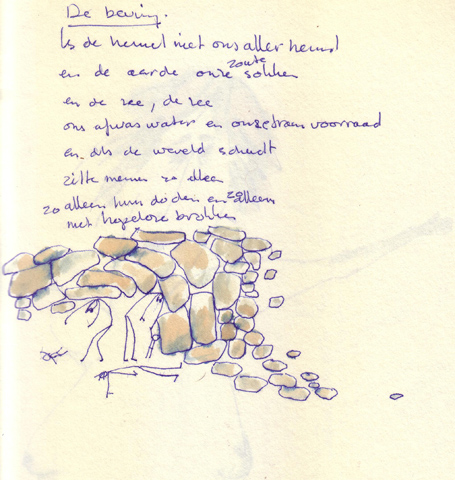 De beving.
Is de hemel niet ons aller hemel
en de aarde onze zoute sokken
en de zee, de zee
ons afwaswater en onze tranenvoorraad
en als de wereld schudt
zitten mensen zo alleen
zo alleen hun doden en zo alleen
met hopeloze brokken